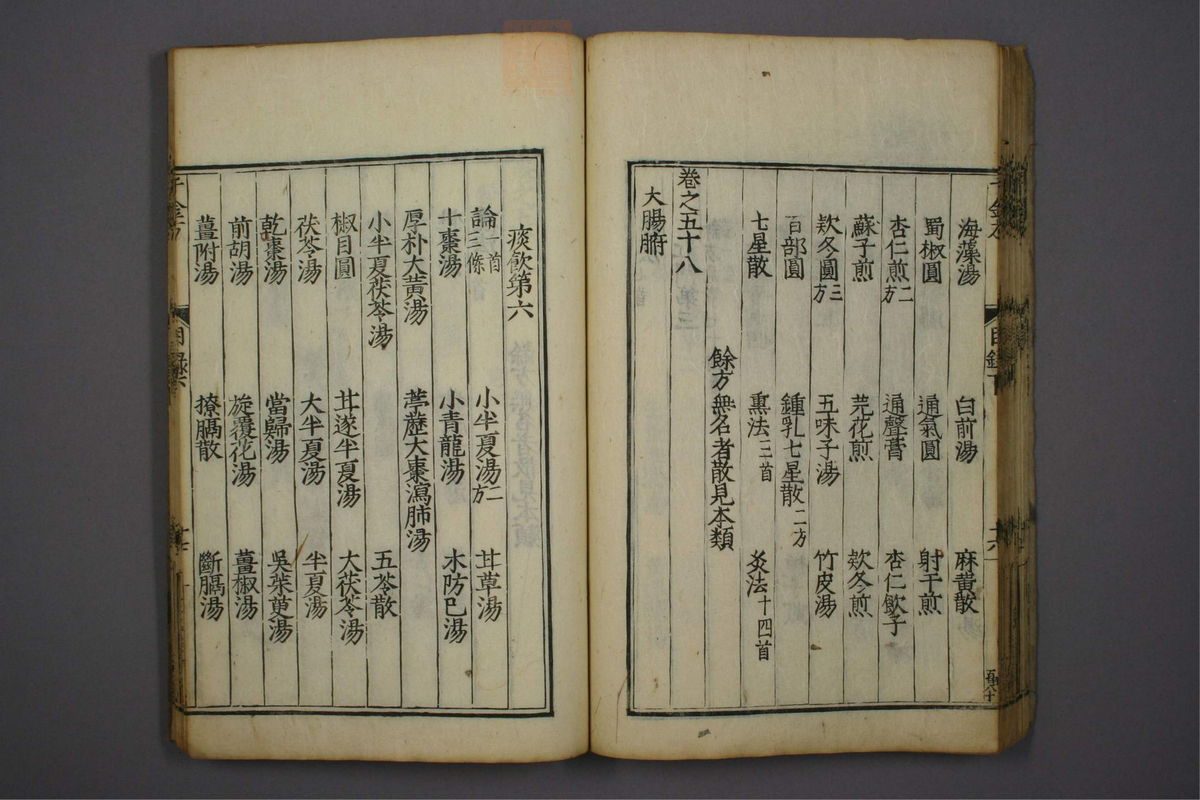 海藻湯 白前湯 麻黄散
蜀椒圓 通氣圓 射干煎
杏仁煎二方 通聲膏 杏仁飲子
蘇子煎 芫花煎 欵冬煎
欵冬圓三方 五味子湯 竹皮湯
百部圓 鍾乳七星散二方
七星散 熏法二首 灸法十四首
餘方無名者散見本類
卷之五十八
大腸腑
痰飲第六
論一首三條 小半夏湯二方 甘草湯
十棗湯 小青龍湯 木防巳湯
厚朴大黄湯 葶藶大棗瀉肺湯
小半夏茯苓湯 五苓散
椒目圓 甘遂半夏湯 大茯苓湯
茯苓湯 大半夏湯 半夏湯
乾棗湯 當歸湯 吳茱萸湯
前胡湯 旋覆花湯 薑椒湯
薑附湯 撩膈散 斷膈湯